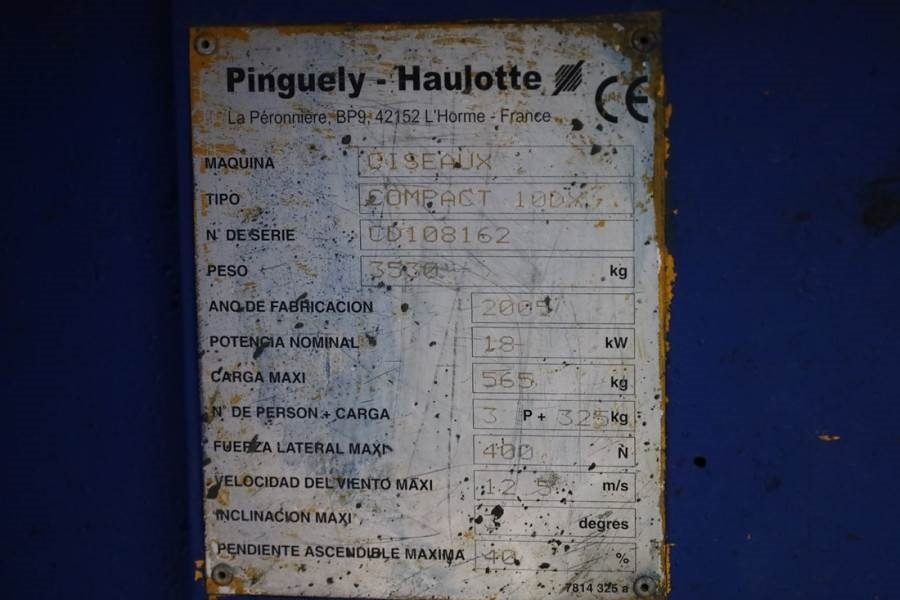 Pinguely - Haulotte
CE
La Péronnière, BP9, 42152 L'Horme - France
MAQUINA OISEAUX
TIPO COMPACT 10DX
N° DE SERIE CD108162
PESO 3530 kg
ANO DE FABRICACION 2005
POTENCIA NOMINAL 18 kW
CARGA MAXI 565 kg
N° DE PERSON + CARGA 3 P + 325 kg
FUERZA LATERAL MAXI 400 N
VELOCIDAD DEL VIENTO MAXI 12 5 m/s
INCLINACION MAXI degres
PENDIENTE ASCENDIBLE MAXIMA 40 %
7814 325 a